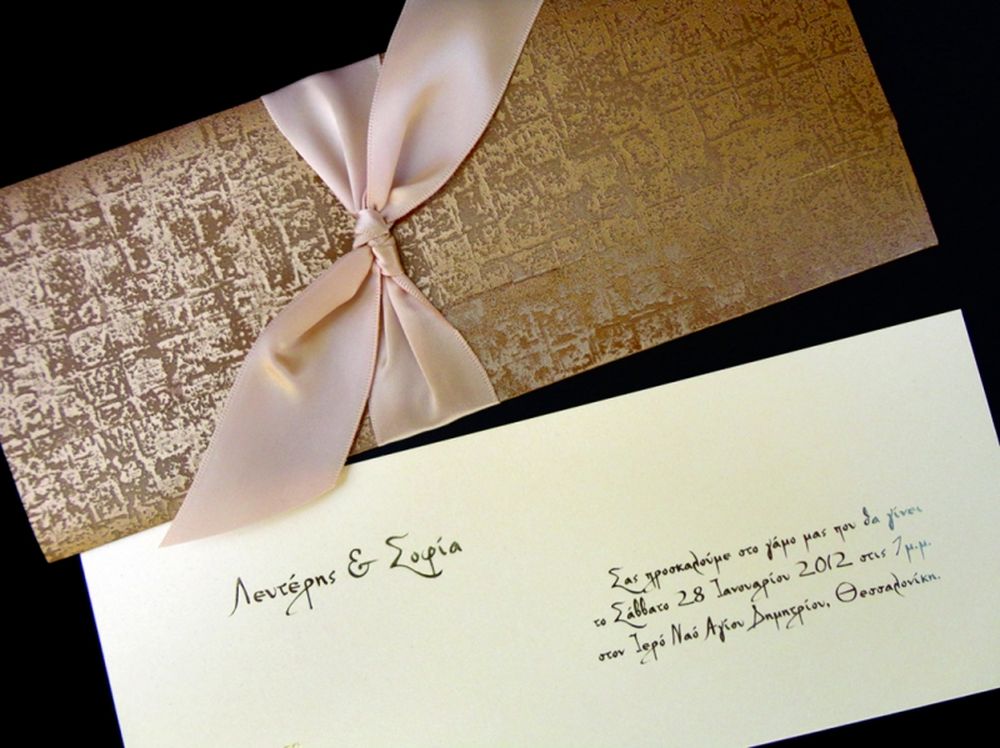 Λευτέρης & Σοφία
Σας προσκαλούμε στο γάμο μας που θα γίνει
το Σάββατο 28 Ιανουαρίου 2012 στις 7 μ.μ.
στον Ιερό Ναό Αγίου Δημητρίου, Θεσσαλονίκη.